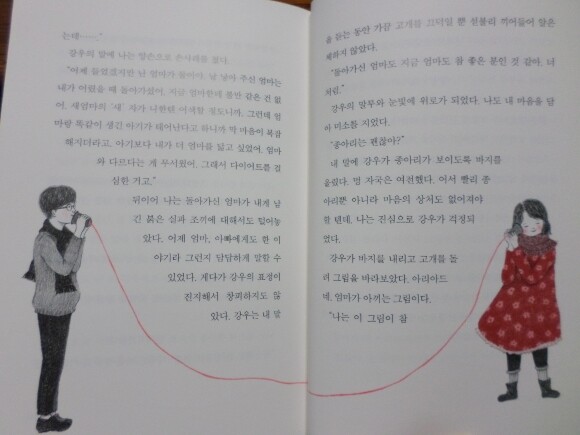 는데……."
강우의 말에 나는 양손으로 손사래를 쳤다.
"어제 들었겠지만 난 엄마가 둘이야. 날 낳아 주신 엄마는
내가 어렸을 때 돌아가셨어. 지금 엄마한테 불만 같은 건 없
어. 새엄마의 '새' 자가 나한텐 어색할 정도니까. 그런데 엄
마랑 똑같이 생긴 아기가 태어난다고 하니까 막 마음이 복잡
해지더라고. 아기보다 내가 더 엄마를 닮고 싶었어. 엄마
와 다르다는 게 무서웠어. 그래서 다이어트를 결
심한 거고."
뒤이어 나는 돌아가신 엄마가 내게 남
긴 붉은 실과 조끼에 대해서도 털어놓
았다. 어제 엄마, 아빠에게도 한 이
야기라 그런지 담담하게 말할 수
있었다. 게다가 강우의 표정이
진지해서 창피하지도 않
았다. 강우는 내 말
을 듣는 동안 가끔 고개를 끄덕일 뿐 섣불리 끼어들어 알은
체하지 않았다.
"돌아가신 엄마도 지금 엄마도 참 좋은 분인 것 같아. 너
처럼."
강우의 말투와 눈빛에 위로가 되었다. 나도 내 마음을 담
아 미소를 지었다.
"종아리는 괜찮아?"
내 말에 강우가 종아리가 보이도록 바지를
올렸다. 멍 자국은 여전했다. 어서 빨리 종
아리뿐 아니라 마음의 상처도 없어져야
할 텐데. 나는 진심으로 강우가 걱정되
었다.
강우가 바지를 내리고 고개를 돌
려 그림을 바라보았다. 아리아드
네, 엄마가 아끼는 그림이다.
"나는 이 그림이 참